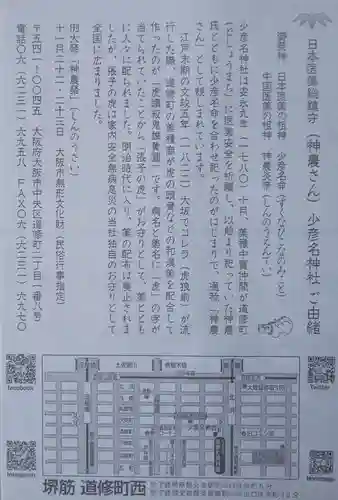 日本医薬総鎮守（神農さん）少彦名神社 ご由緒
御祭神　日本医薬の祖神　少彦名命（すくなひこなのみこと）
中国医薬の祖神　神農炎帝（しんのうえんてい）
少彦名神社は安永九年（一七八〇）十月、薬種中買仲間が道修町
（どしょうまち）に医薬安全を祈願し、以前より祀っていた神農
氏とともに少彦名命を合わせ祀ったのがはじまりで、通称「神農
さん」として親しまれています。
江戸末期の文政五年（一八二二）大坂でコレラ（虎狼痢）が流
行した際、道修町の薬種商が虎の頭骨などの和漢薬を配合して
作ったのが「虎頭殺鬼雄黄圓」です。病名と薬名に「虎」の字が
当てられていたことから、「張子の虎」がお守りとして、薬とともに
人々に配られました。明治時代に入り、薬の配布は廃止されま
したが、張子の虎は家内安全無病息災の当社独自のお守りとして
全国に広まりました。
例大祭「神農祭」（しんのうさい）
十一月二十二・二十三日　大阪市無形文化財（民俗行事指定）
〒五四一-〇〇四五　大阪府大阪市中央区道修町二丁目一番八号
電話〇六（六二三一）六九五八　ＦＡＸ〇六（六二三一）六九七〇
facebook
Twitter
Instagram
堺筋 道修町西